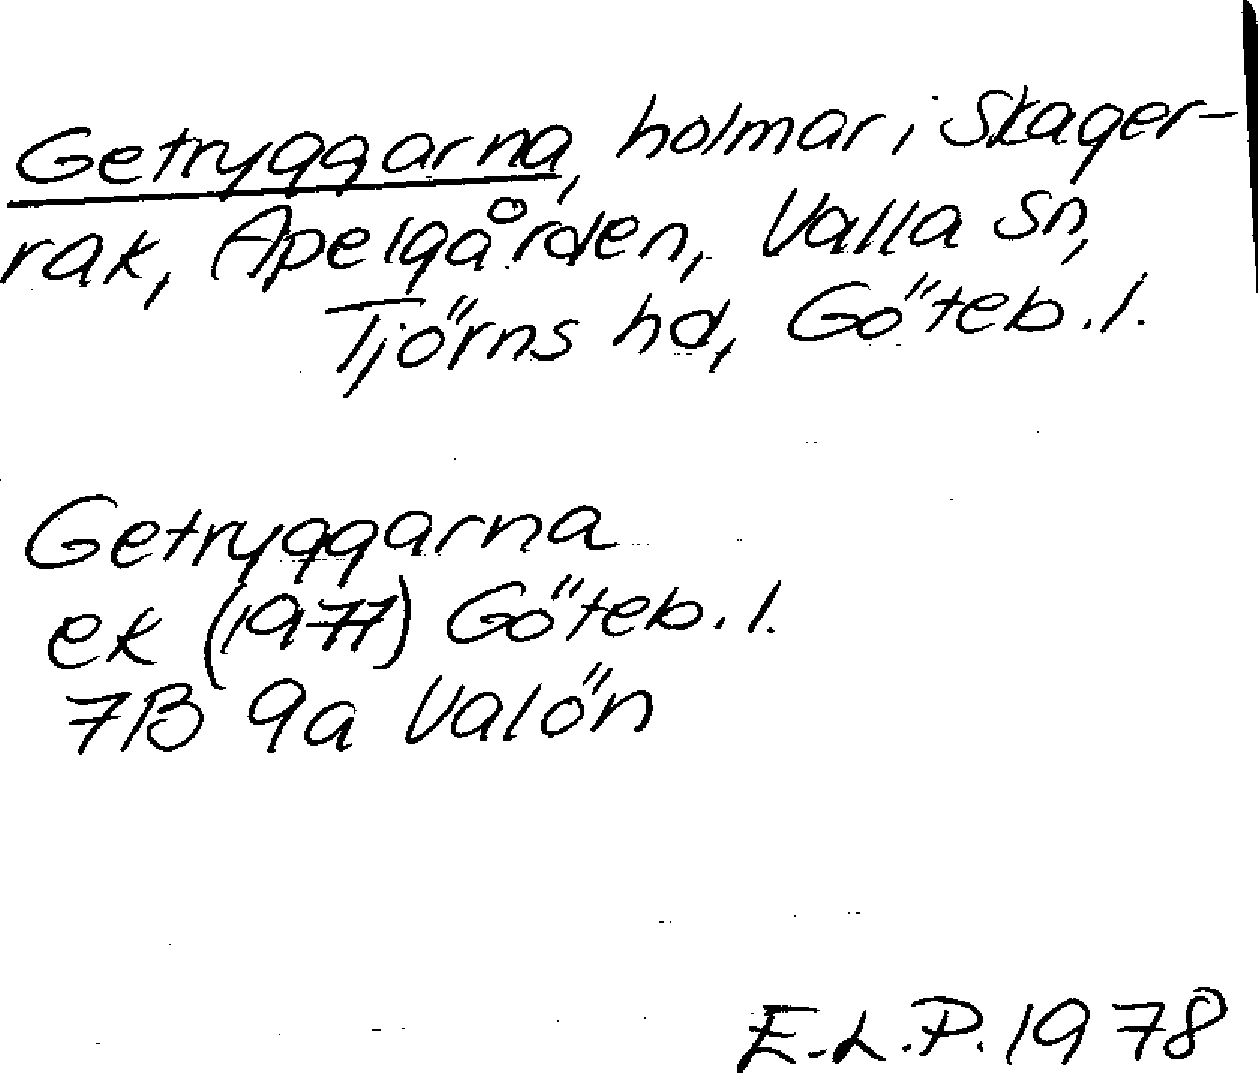 Getryggarna, holmar i Skager-
rak, Apelgården, Valla sn,
Tjörns hd, Göteb. l.
Getryggarna
ek (1977) Göteb. l.
7B 9a Valön
E.L.P. 1978